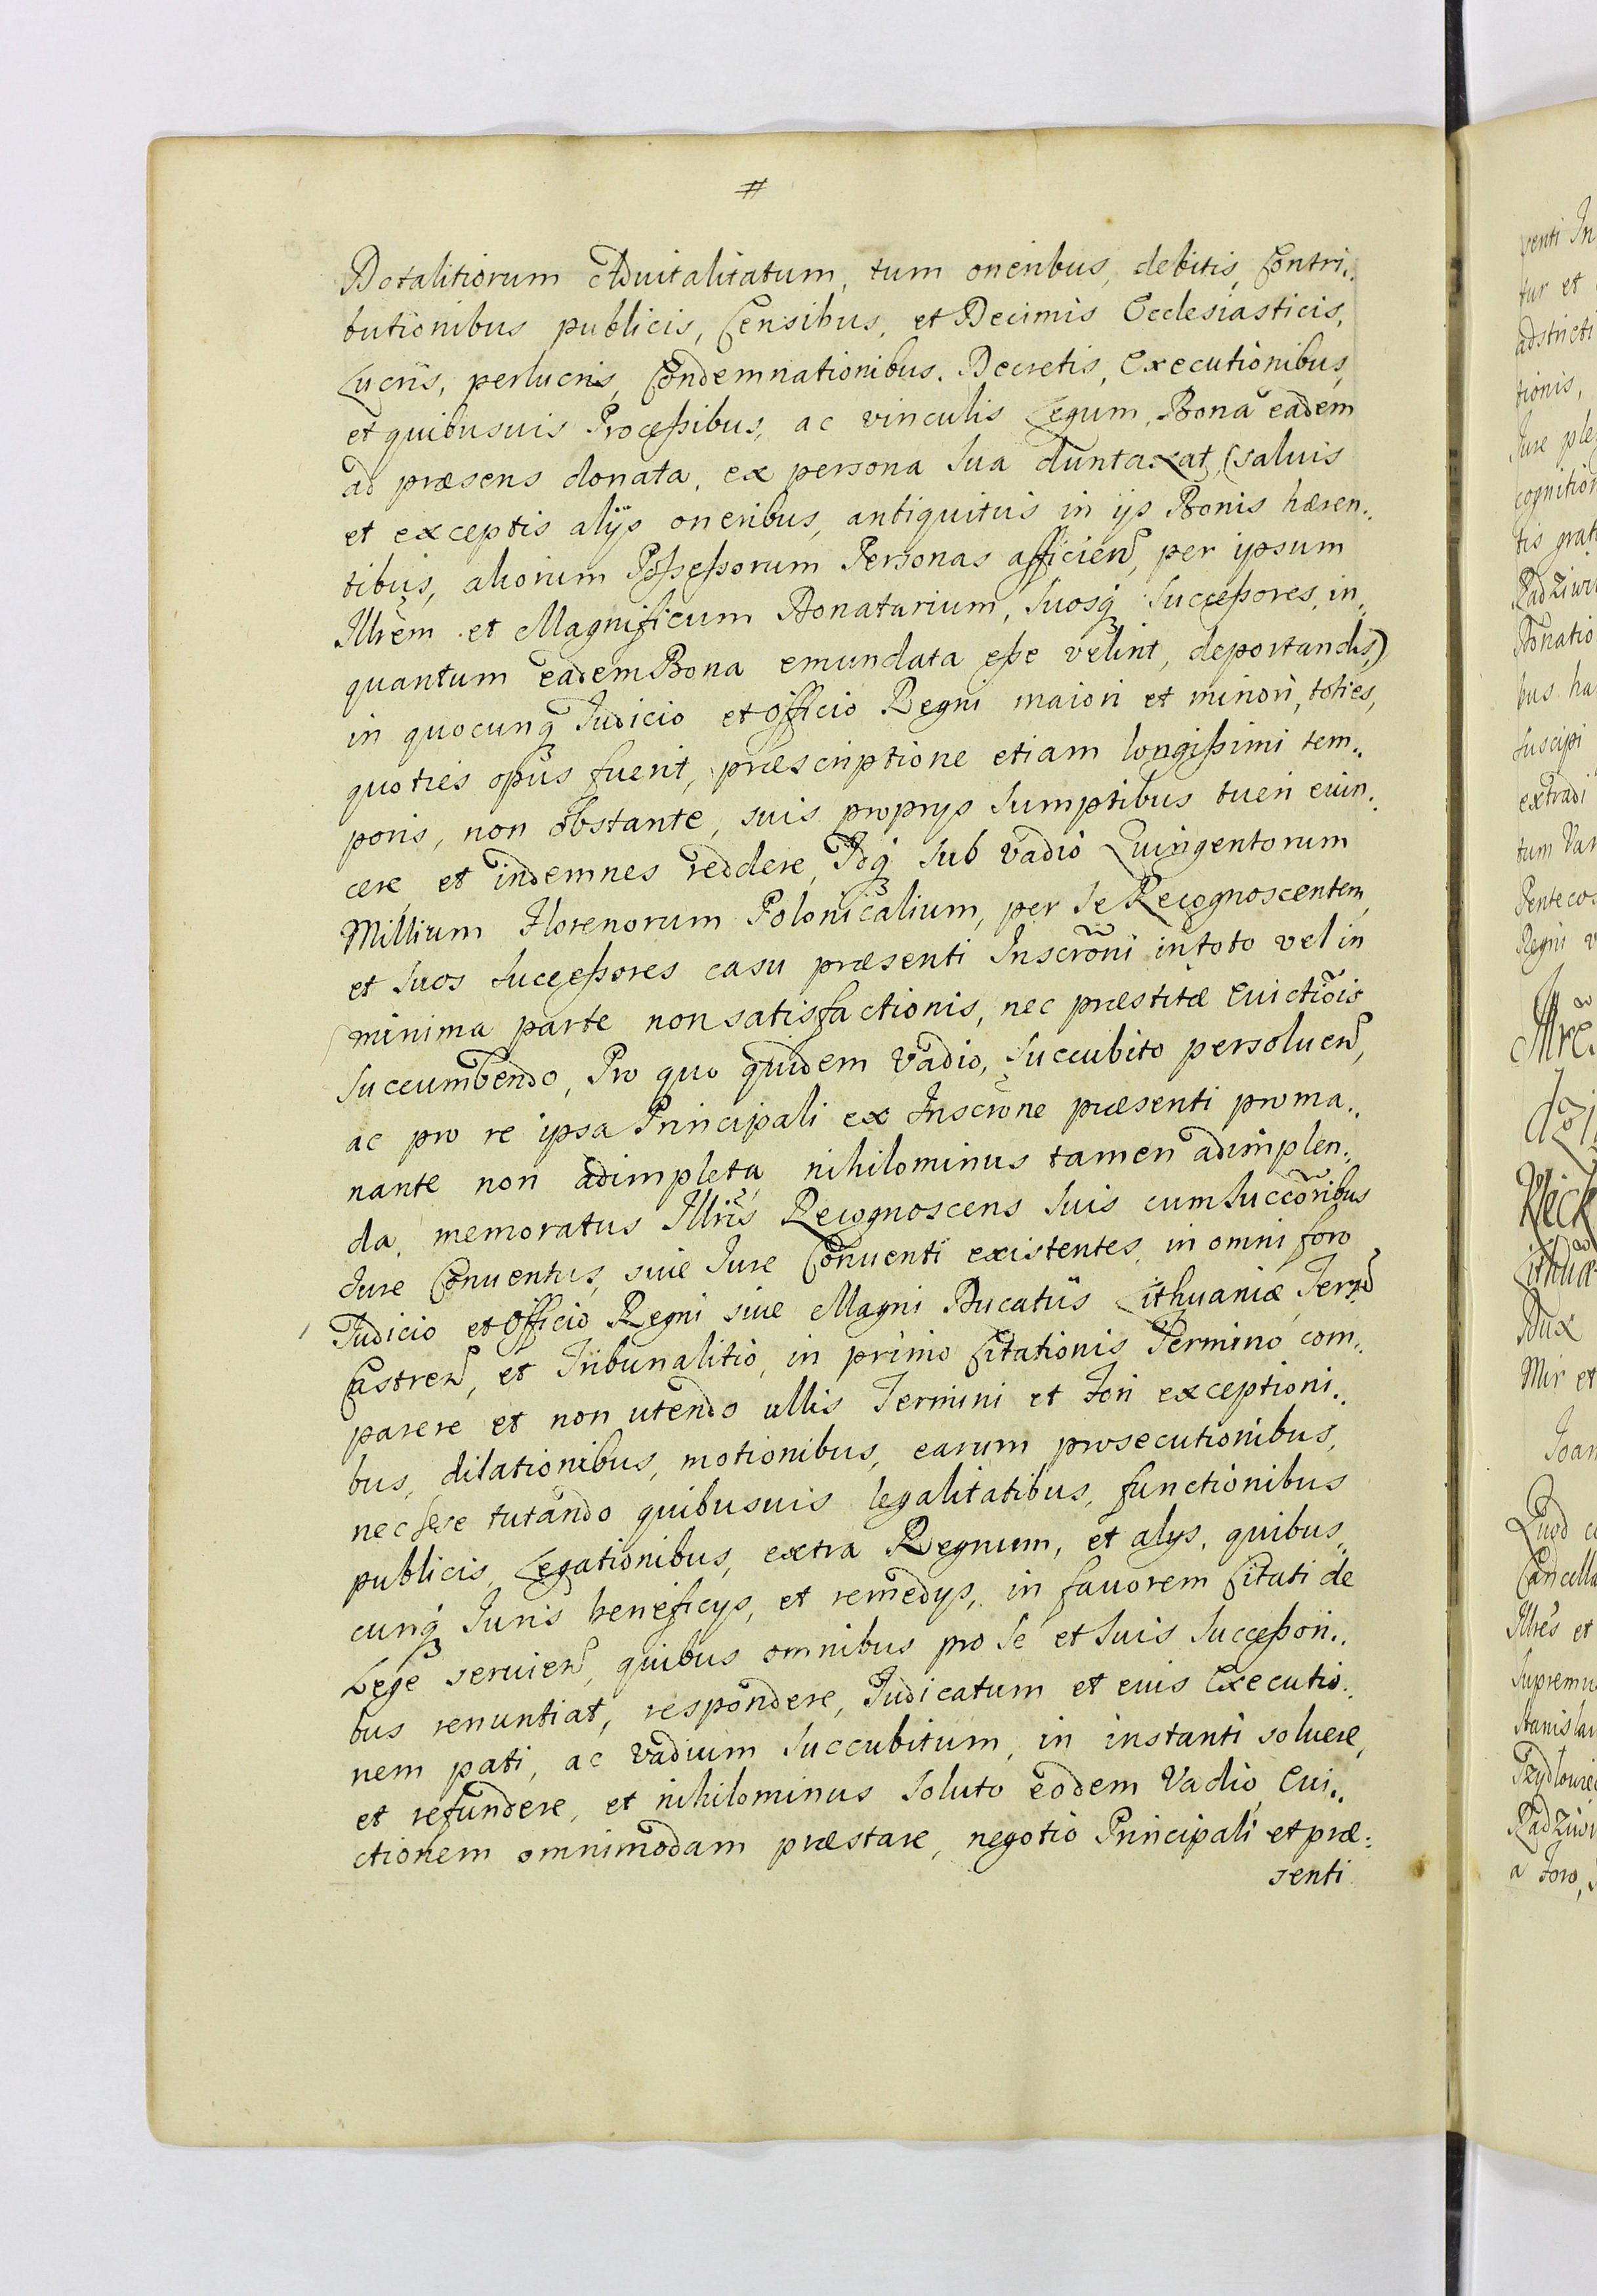 #
Dotalitiorum Advitalitatum, tum oneribus, debitis, Contri..
butionibus publicis, Censibus, et Decimis Ecclesiasticis,
Lucris, perlucris, Condemnationibus. Decretis, Executionibus,
et quibusuis Proceßibus, ac vinculis Legum, Bona eadem
ad præsens donata, ex persona sua duntaxat, (saluis
et exceptis alijs oneribus, antiquitus in ijs Bonis hæren..
tibus, aliorum Poßeßorum Personas afficien, per ipsum
Illrem et Magnificum Donatarium, Suosq Succeßores, in..
quantum eadem Bona emundata eße velint, deportandis,)
in quocunq Judicio et Officio Regni maiori et minori, toties,
quoties opus fuerit, præscriptione etiam longißimi tem..
poris, non obstante, suis proprijs Sumptibus tueri euin..
cere, et indemnes reddere, Idq sub vadio Quingentorum
Millium Florenorum Polonicalium, per Se Recognoscentem,
et Suos Succeßores casu præsenti Inscrõni in toto vel in
minima parte non satisfactionis, nec præstitæ Euictiõis
Succumbendo, Pro quo quidem Vadio, Succubito persoluen,
ac pro re ipsa Principali ex Inscrione præsenti proma..
nante non adimpleta nihilominus tamen adimplen..
da, memoratus Illris Recognoscens Suis cum Succõribus
Jure Conuentus, siue Jure Conuenti existentes, in omni foro
Judicio et Officio Regni siue Magni Ducatus Lithuaniæ, Terrᵈ
Castren, et Tribunalitio, in primo Citationis Termino, com..
parere et non utendo ullis Termini et Fori exceptioni..
bus, dilationibus, motionibus, earum prosecutionibus,
nec sese tutando quibusuis legalitatibus, functionibus
publicis, Legationibus, extra Regnum, et alys, quibus..
cunq Juris beneficys, et remedys, in fauorem Citati de
Lege seruien, quibus omnibus pro se et suis Succeßori..
bus renuntiat, respondere, Judicatum et euis Executio..
nem pati, ac vadium Succubitum, in instanti soluere,
et refundere, et nihilominus Soluto eodem Vadio, Eui..
ctionem omnimodam præstare, negotio Principali et præ..
senti